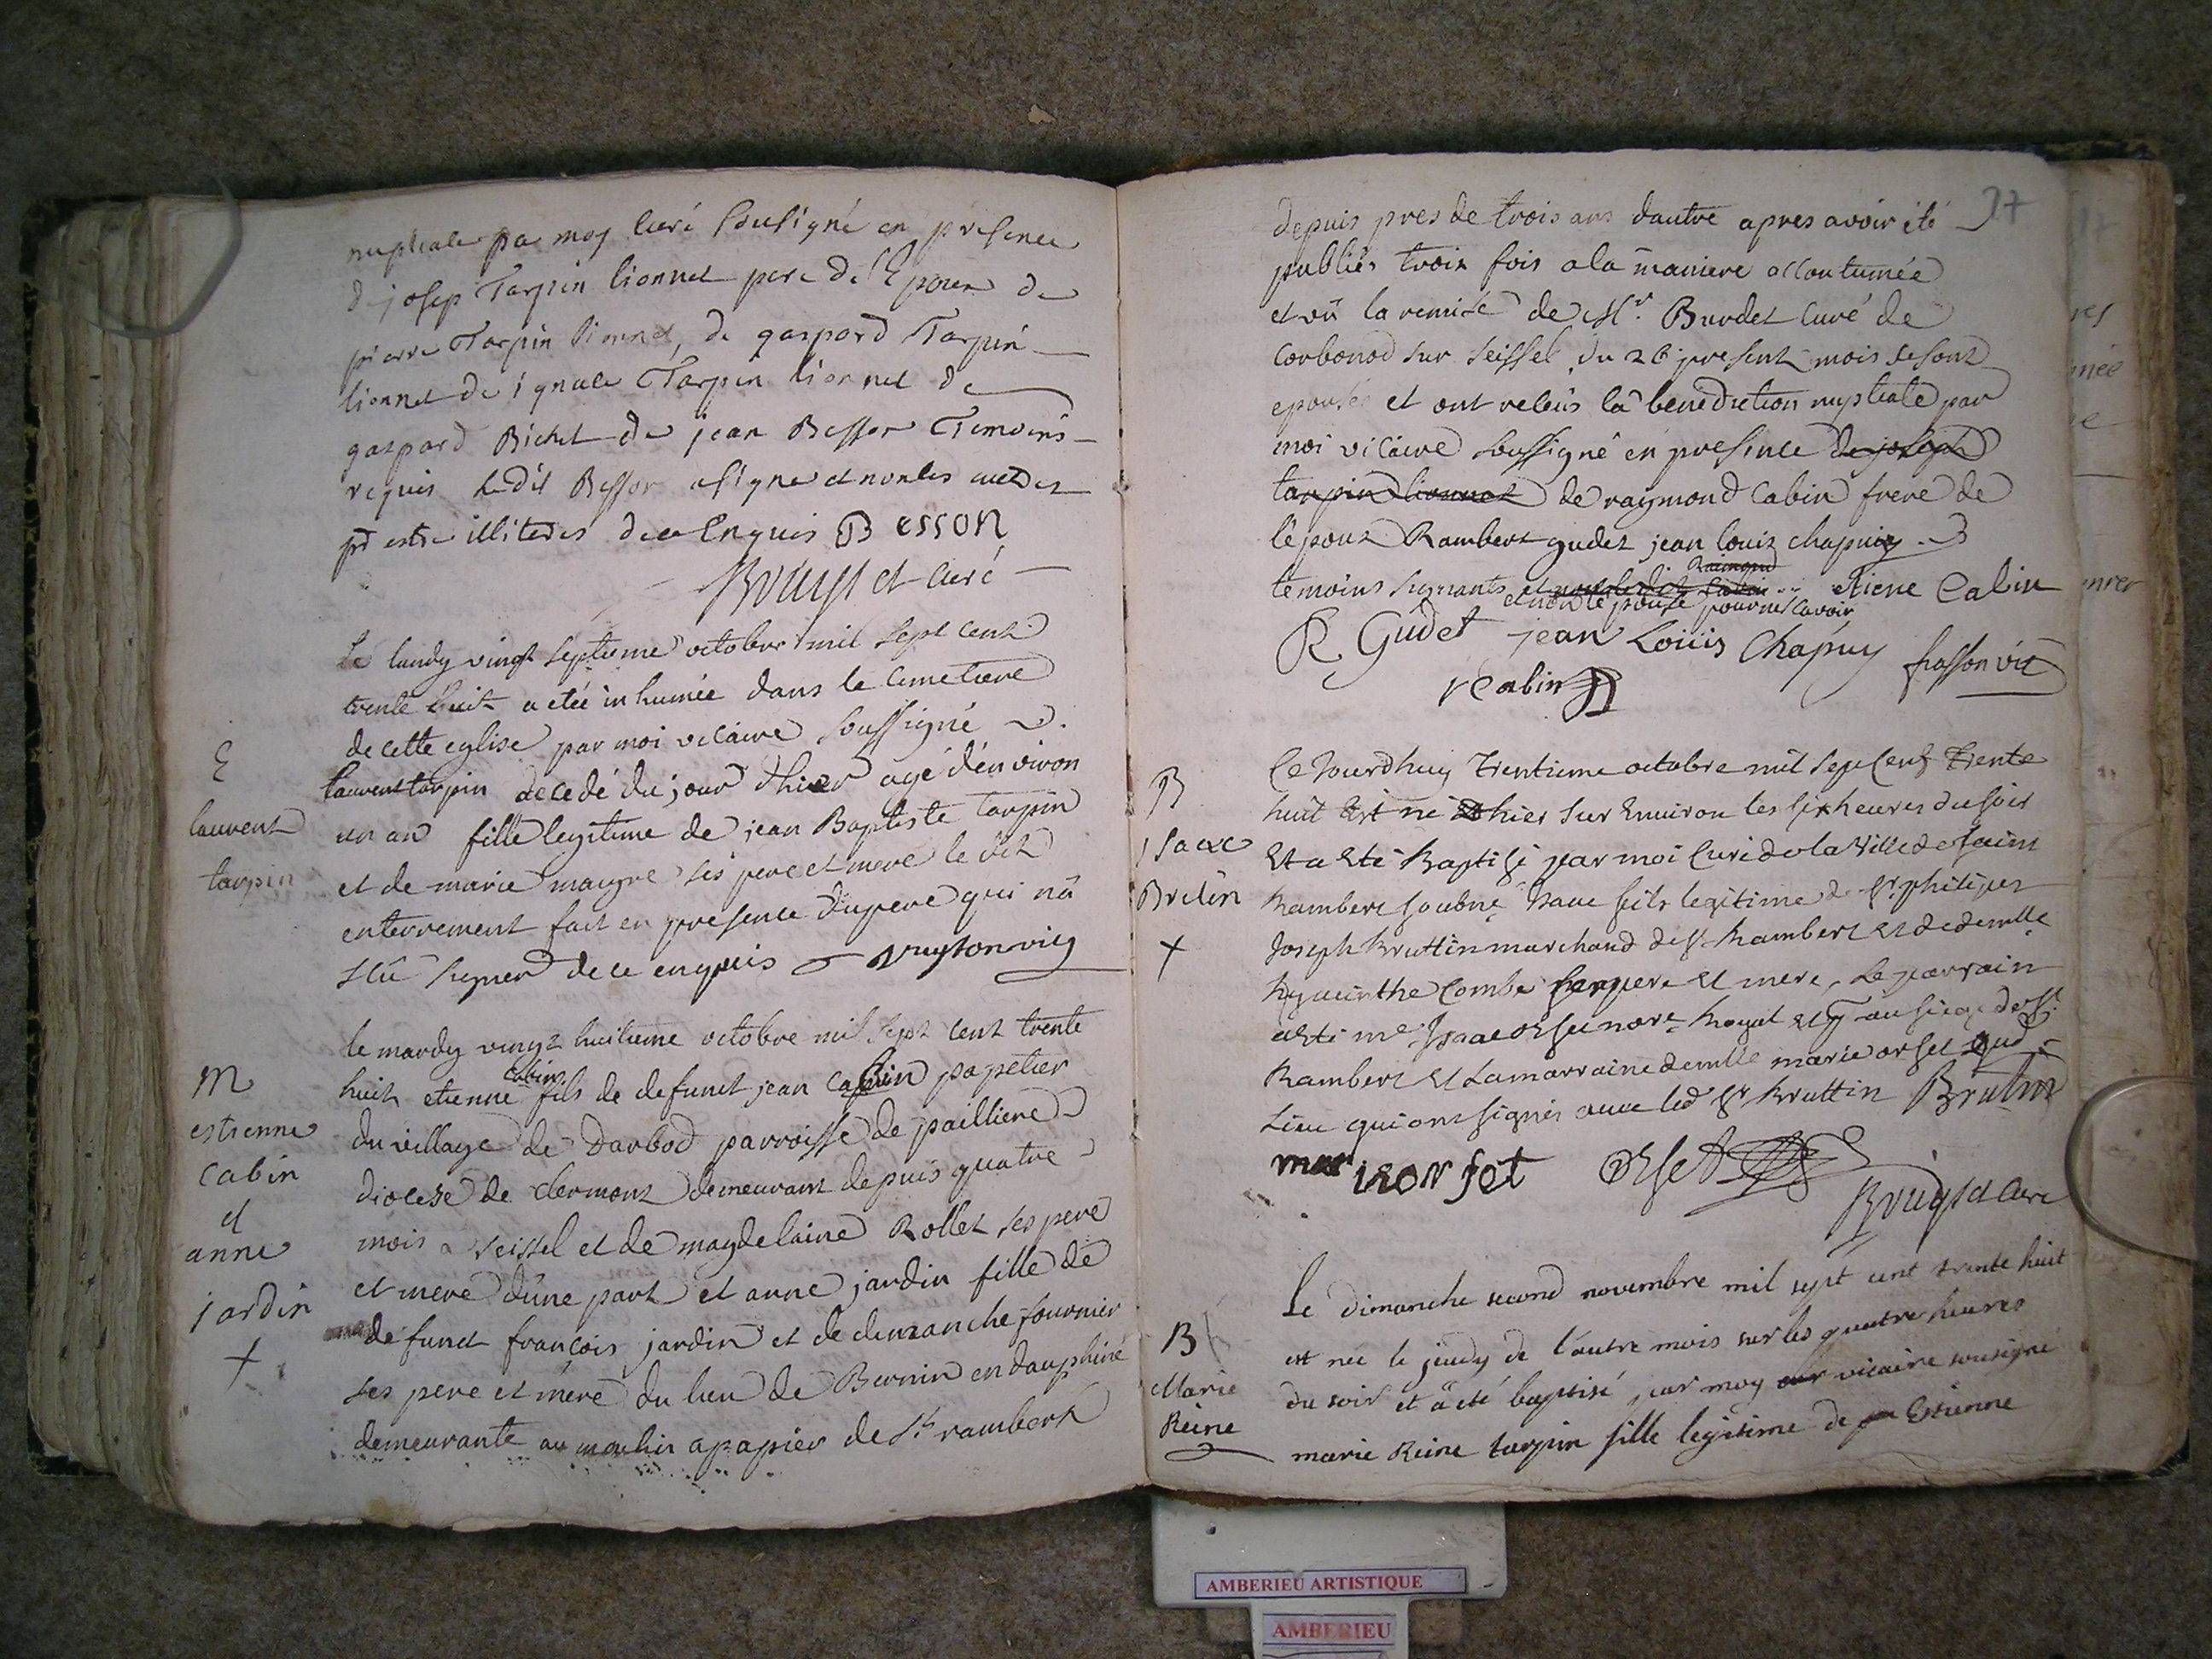 nuptiale par moy curé sousigné en presence
de josep Tarpin lionnet pere de l'Epoux de
pierre Tarpin lionnet, de gaspard Tarpin
lionnet de ignace Tarpin lionnet de
gaspard Bichet de jean Besson Temoins
requis ledit Besson a signe et non les autres
pr estre illiteres de ce Enquis Besson
Brouyset curé
Le lundy vingt septieme octobre mil sept cent
trente huit a etée inhumée dans le cimetiere
de cette eglise par moi vicaire soussigné
E
laurent
tarpin
laurent tarpin decedé du jour d'hier agé d'environ
un an fille legitime de jean Baptiste tarpin
et de marie maugre ses pere et mere le dit
enterrement fait en presence du pere qui n'a
sçû signer de ce enquis
M
estienne
Cabin
et
anne
jardin
le mardy vingt huitieme octobre mil sept cent trente
Cabin
huit etienne fils de defunct jean Cabin papetier
du village de Darbod parroisse de pailliere
diocese de clermont demeurant depuis quatre
mois a seissel et de magdelaine Rollet ses pere
et mere d'une part et anne jardin fille de
defunct françois jardin et de dimanche fournier
ses pere et mere du lieu de Bernin en dauphiné
demeurante au moulin a papier de St rambert
37
depuis pres de trois ans dautre apres avoir été
publiés trois fois a la maniere accoutumée
et vû la remise de Mr. Burdet Curé de
Corbonod sur seissel du 26 present mois se sont
epousés et ont reçeus la benediction nuptiale par
moi vicaire soussigné en presence de joseph
tarpin lionnet de raymond Cabin frere de
l'epoux Rambert gudet jean louis chapuy
Raimond
temoins signants et non ledit Cabin etiene Cabin
et non l'épouse pour ne sçavoir
R Gudet jean Loüis Chapuy frasson vic
r Cabin
B
Isaac
Brutin
Ce Jourdhuy Trentieme octobre mil sept Cent Trente
huit Est né hier sur Environ les six heures du soir
Et a Eté Baptisé par moi Curé de la Ville de saint
Rambert soubné Isaac fils legitime de sr philipes
Joseph Bruttin marchand de st Rambert et de demlle
hyacinthe Combe ses pere et mere, Le parrain
a Eté me Isaac orset nore Royal et au siege de st
Rambert et La marraine demlle marie orset dud
Lieu qui ont signés avec led sr Bruttin Brutin
mariorset Orset
Brouyset Curé
B
Marie
Reine
Le dimanche second novembre mil sept cent trente huit
est née le jeudy de l'autre mois sur les quatre heures
du soir et a été baptisé par moy vicaire sousigné
marie Reine tarpin fille legitime de Etienne
AMBERIEU ARTISTIQUE
AMBERIEU